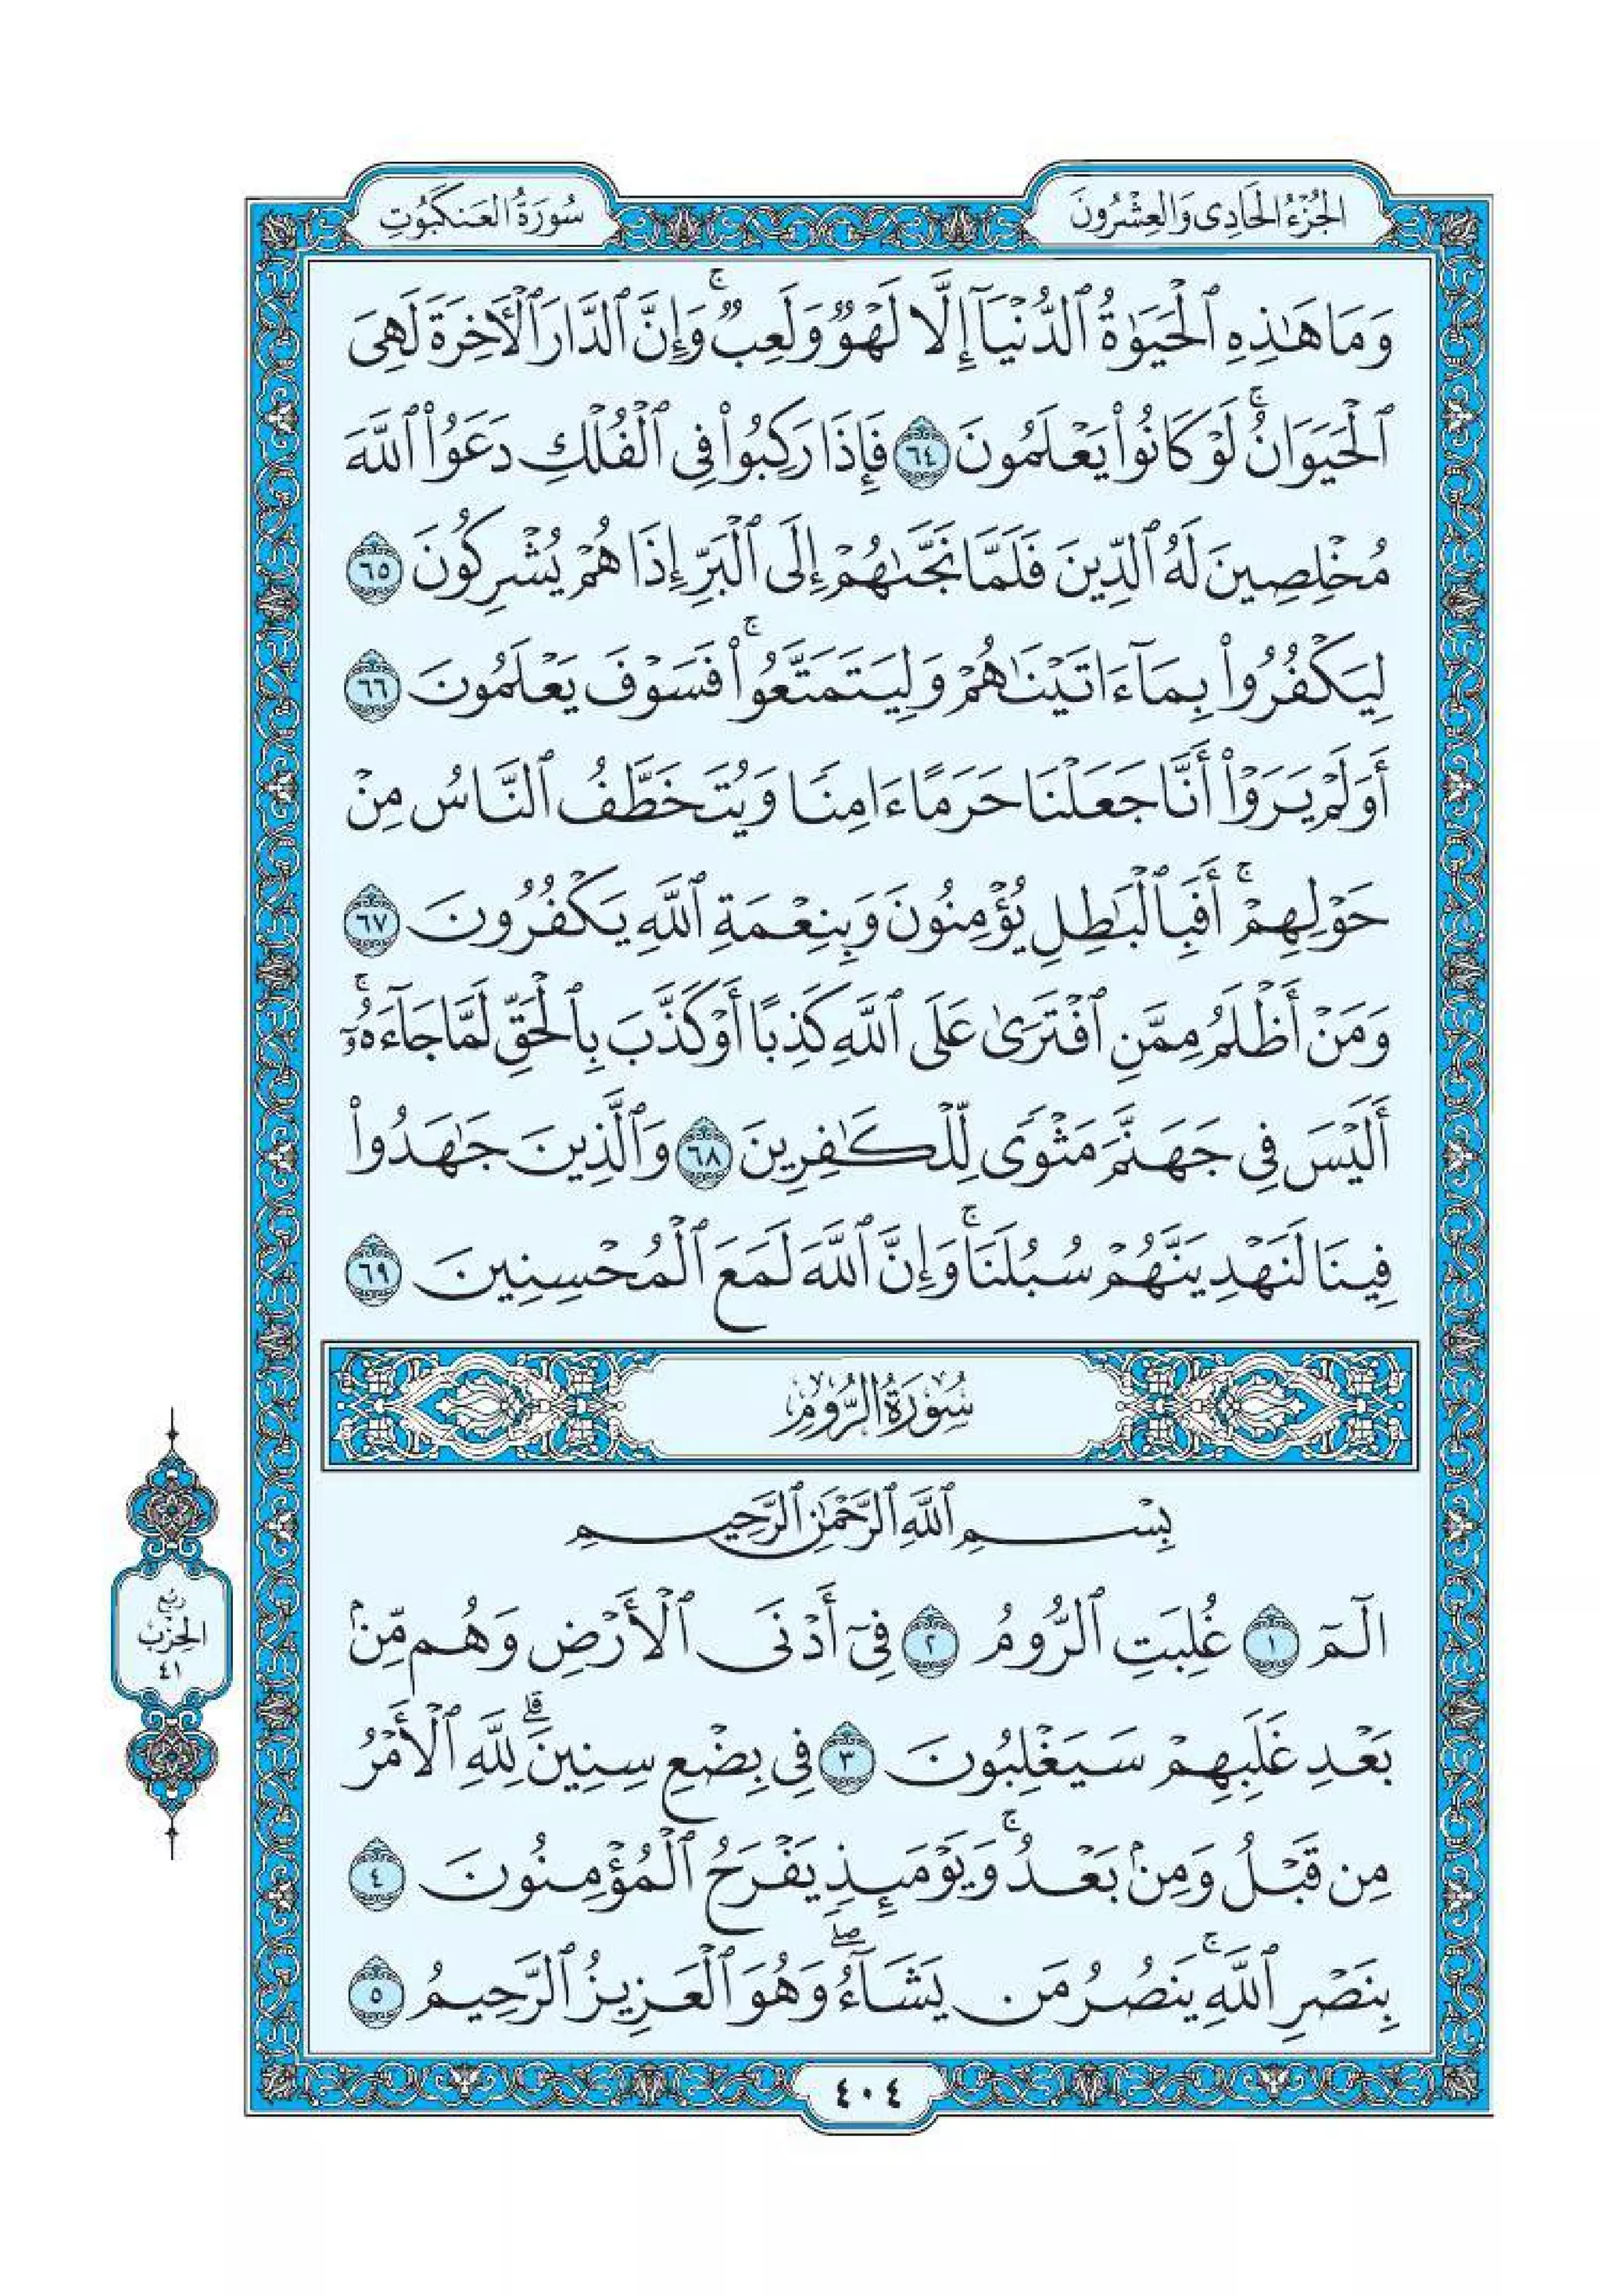 الجُزْءُ الحَادِى وَالعِشْرُونَ
سُورَةُ العَنكَبُوتِ
وَمَا هَٰذِهِ ٱلْحَيَوٰةُ ٱلدُّنْيَآ إِلَّا لَهْوٌ وَلَعِبٌ ۚ وَإِنَّ ٱلدَّارَ ٱلْءَاخِرَةَ لَهِىَ
ٱلْحَيَوَانُ ۚ لَوْ كَانُوا۟ يَعْلَمُونَ ٦٤ فَإِذَا رَكِبُوا۟ فِى ٱلْفُلْكِ دَعَوُا۟ ٱللَّهَ
مُخْلِصِينَ لَهُ ٱلدِّينَ فَلَمَّا نَجَّىٰهُمْ إِلَى ٱلْبَرِّ إِذَا هُمْ يُشْرِكُونَ ٦٥
لِيَكْفُرُوا۟ بِمَآ ءَاتَيْنَٰهُمْ وَلِيَتَمَتَّعُوا۟ ۚ فَسَوْفَ يَعْلَمُونَ ٦٦
أَوَلَمْ يَرَوْا۟ أَنَّا جَعَلْنَا حَرَمًا ءَامِنًا وَيُتَخَطَّفُ ٱلنَّاسُ مِنْ
حَوْلِهِمْ ۚ أَفَبِٱلْبَٰطِلِ يُؤْمِنُونَ وَبِنِعْمَةِ ٱللَّهِ يَكْفُرُونَ ٦٧
وَمَنْ أَظْلَمُ مِمَّنِ ٱفْتَرَىٰ عَلَى ٱللَّهِ كَذِبًا أَوْ كَذَّبَ بِٱلْحَقِّ لَمَّا جَآءَهُۥٓ ۚ
أَلَيْسَ فِى جَهَنَّمَ مَثْوًى لِّلْكَٰفِرِينَ ٦٨ وَٱلَّذِينَ جَٰهَدُوا۟
فِينَا لَنَهْدِيَنَّهُمْ سُبُلَنَا ۚ وَإِنَّ ٱللَّهَ لَمَعَ ٱلْمُحْسِنِينَ ٦٩
سُورَةُ الرُّومِ
بِسْمِ ٱللَّهِ ٱلرَّحْمَٰنِ ٱلرَّحِيمِ
الٓمٓ ١ غُلِبَتِ ٱلرُّومُ ٢ فِىٓ أَدْنَى ٱلْأَرْضِ وَهُم مِّنۢ
بَعْدِ غَلَبِهِمْ سَيَغْلِبُونَ ٣ فِى بِضْعِ سِنِينَ ۗ لِلَّهِ ٱلْأَمْرُ
مِن قَبْلُ وَمِنۢ بَعْدُ ۚ وَيَوْمَئِذٍ يَفْرَحُ ٱلْمُؤْمِنُونَ ٤
بِنَصْرِ ٱللَّهِ ۚ يَنصُرُ مَن يَشَآءُ ۖ وَهُوَ ٱلْعَزِيزُ ٱلرَّحِيمُ ٥
رُبع
الحِزْب
٤١
٤٠٤